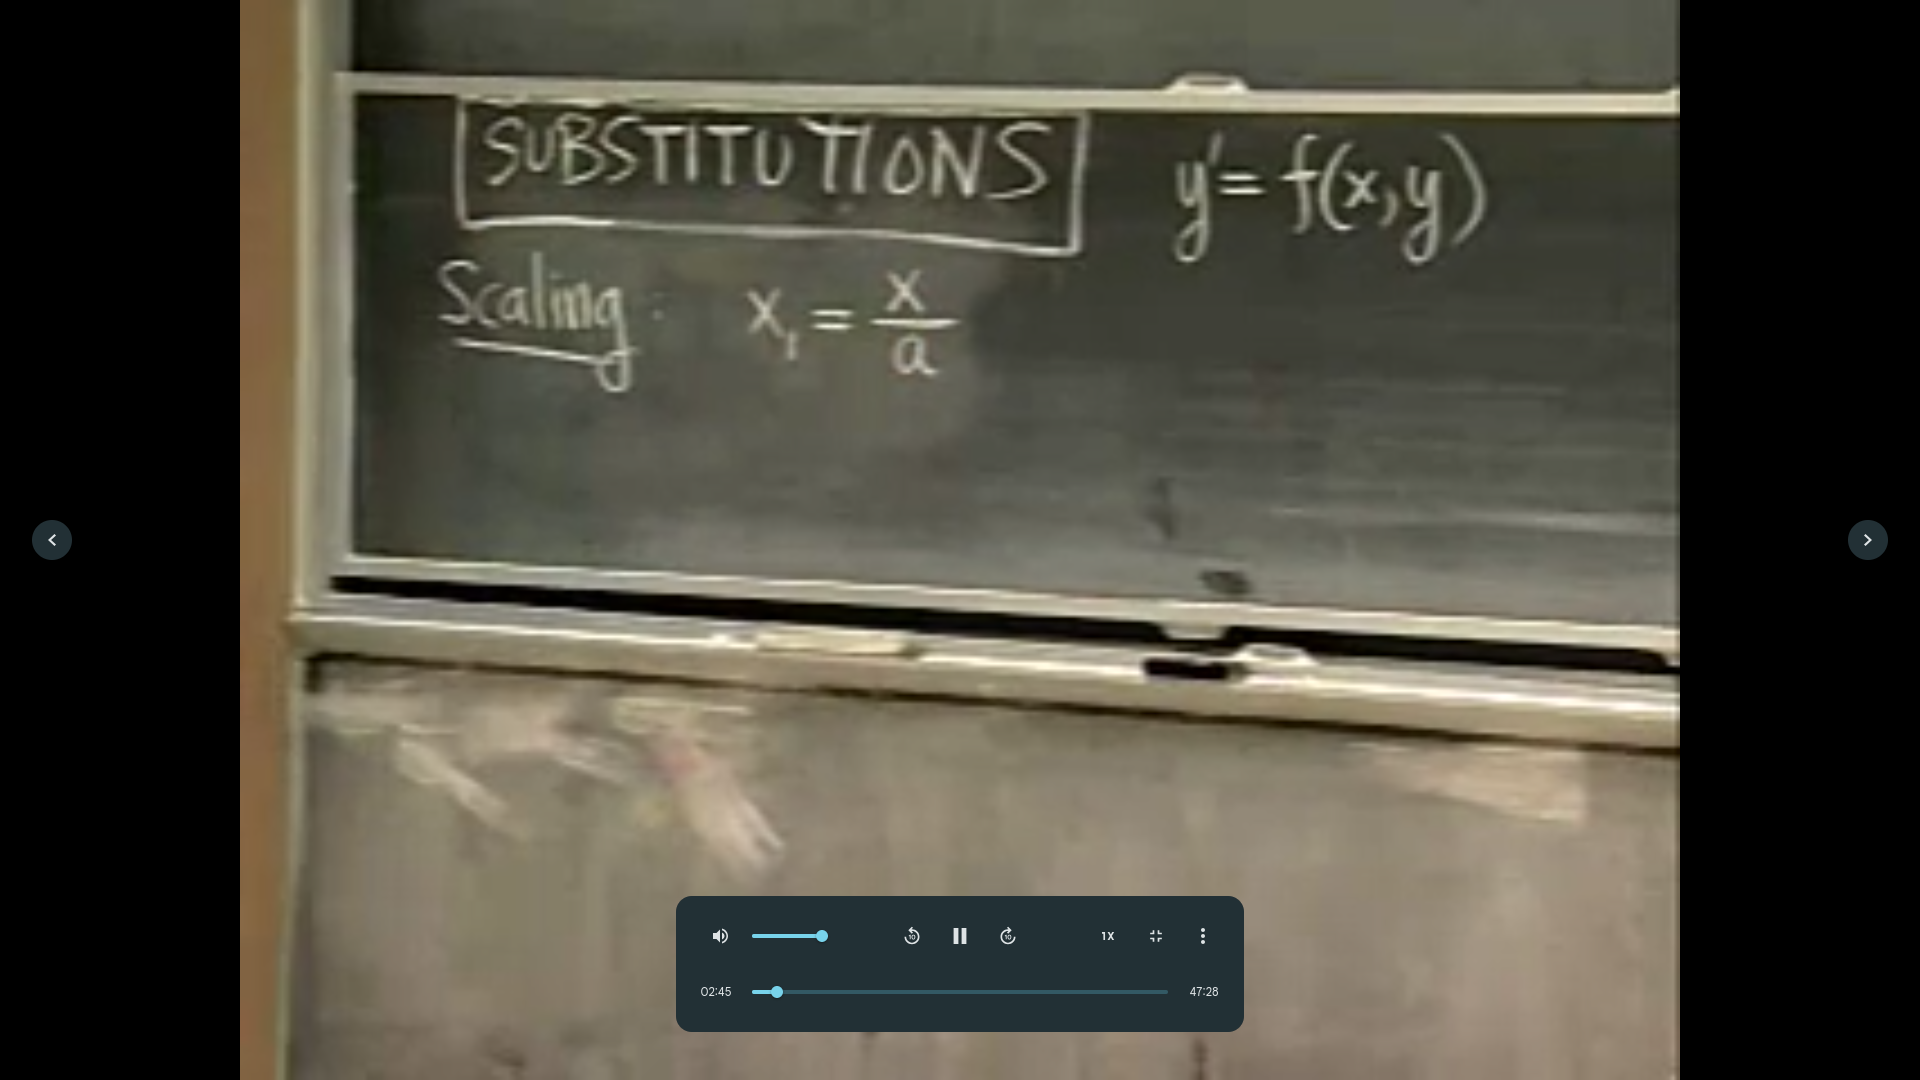 SUBSTITUTIONS y' = f(x,y)
Scaling : x₁ = x/a
10 10 1X
02:45 47:28